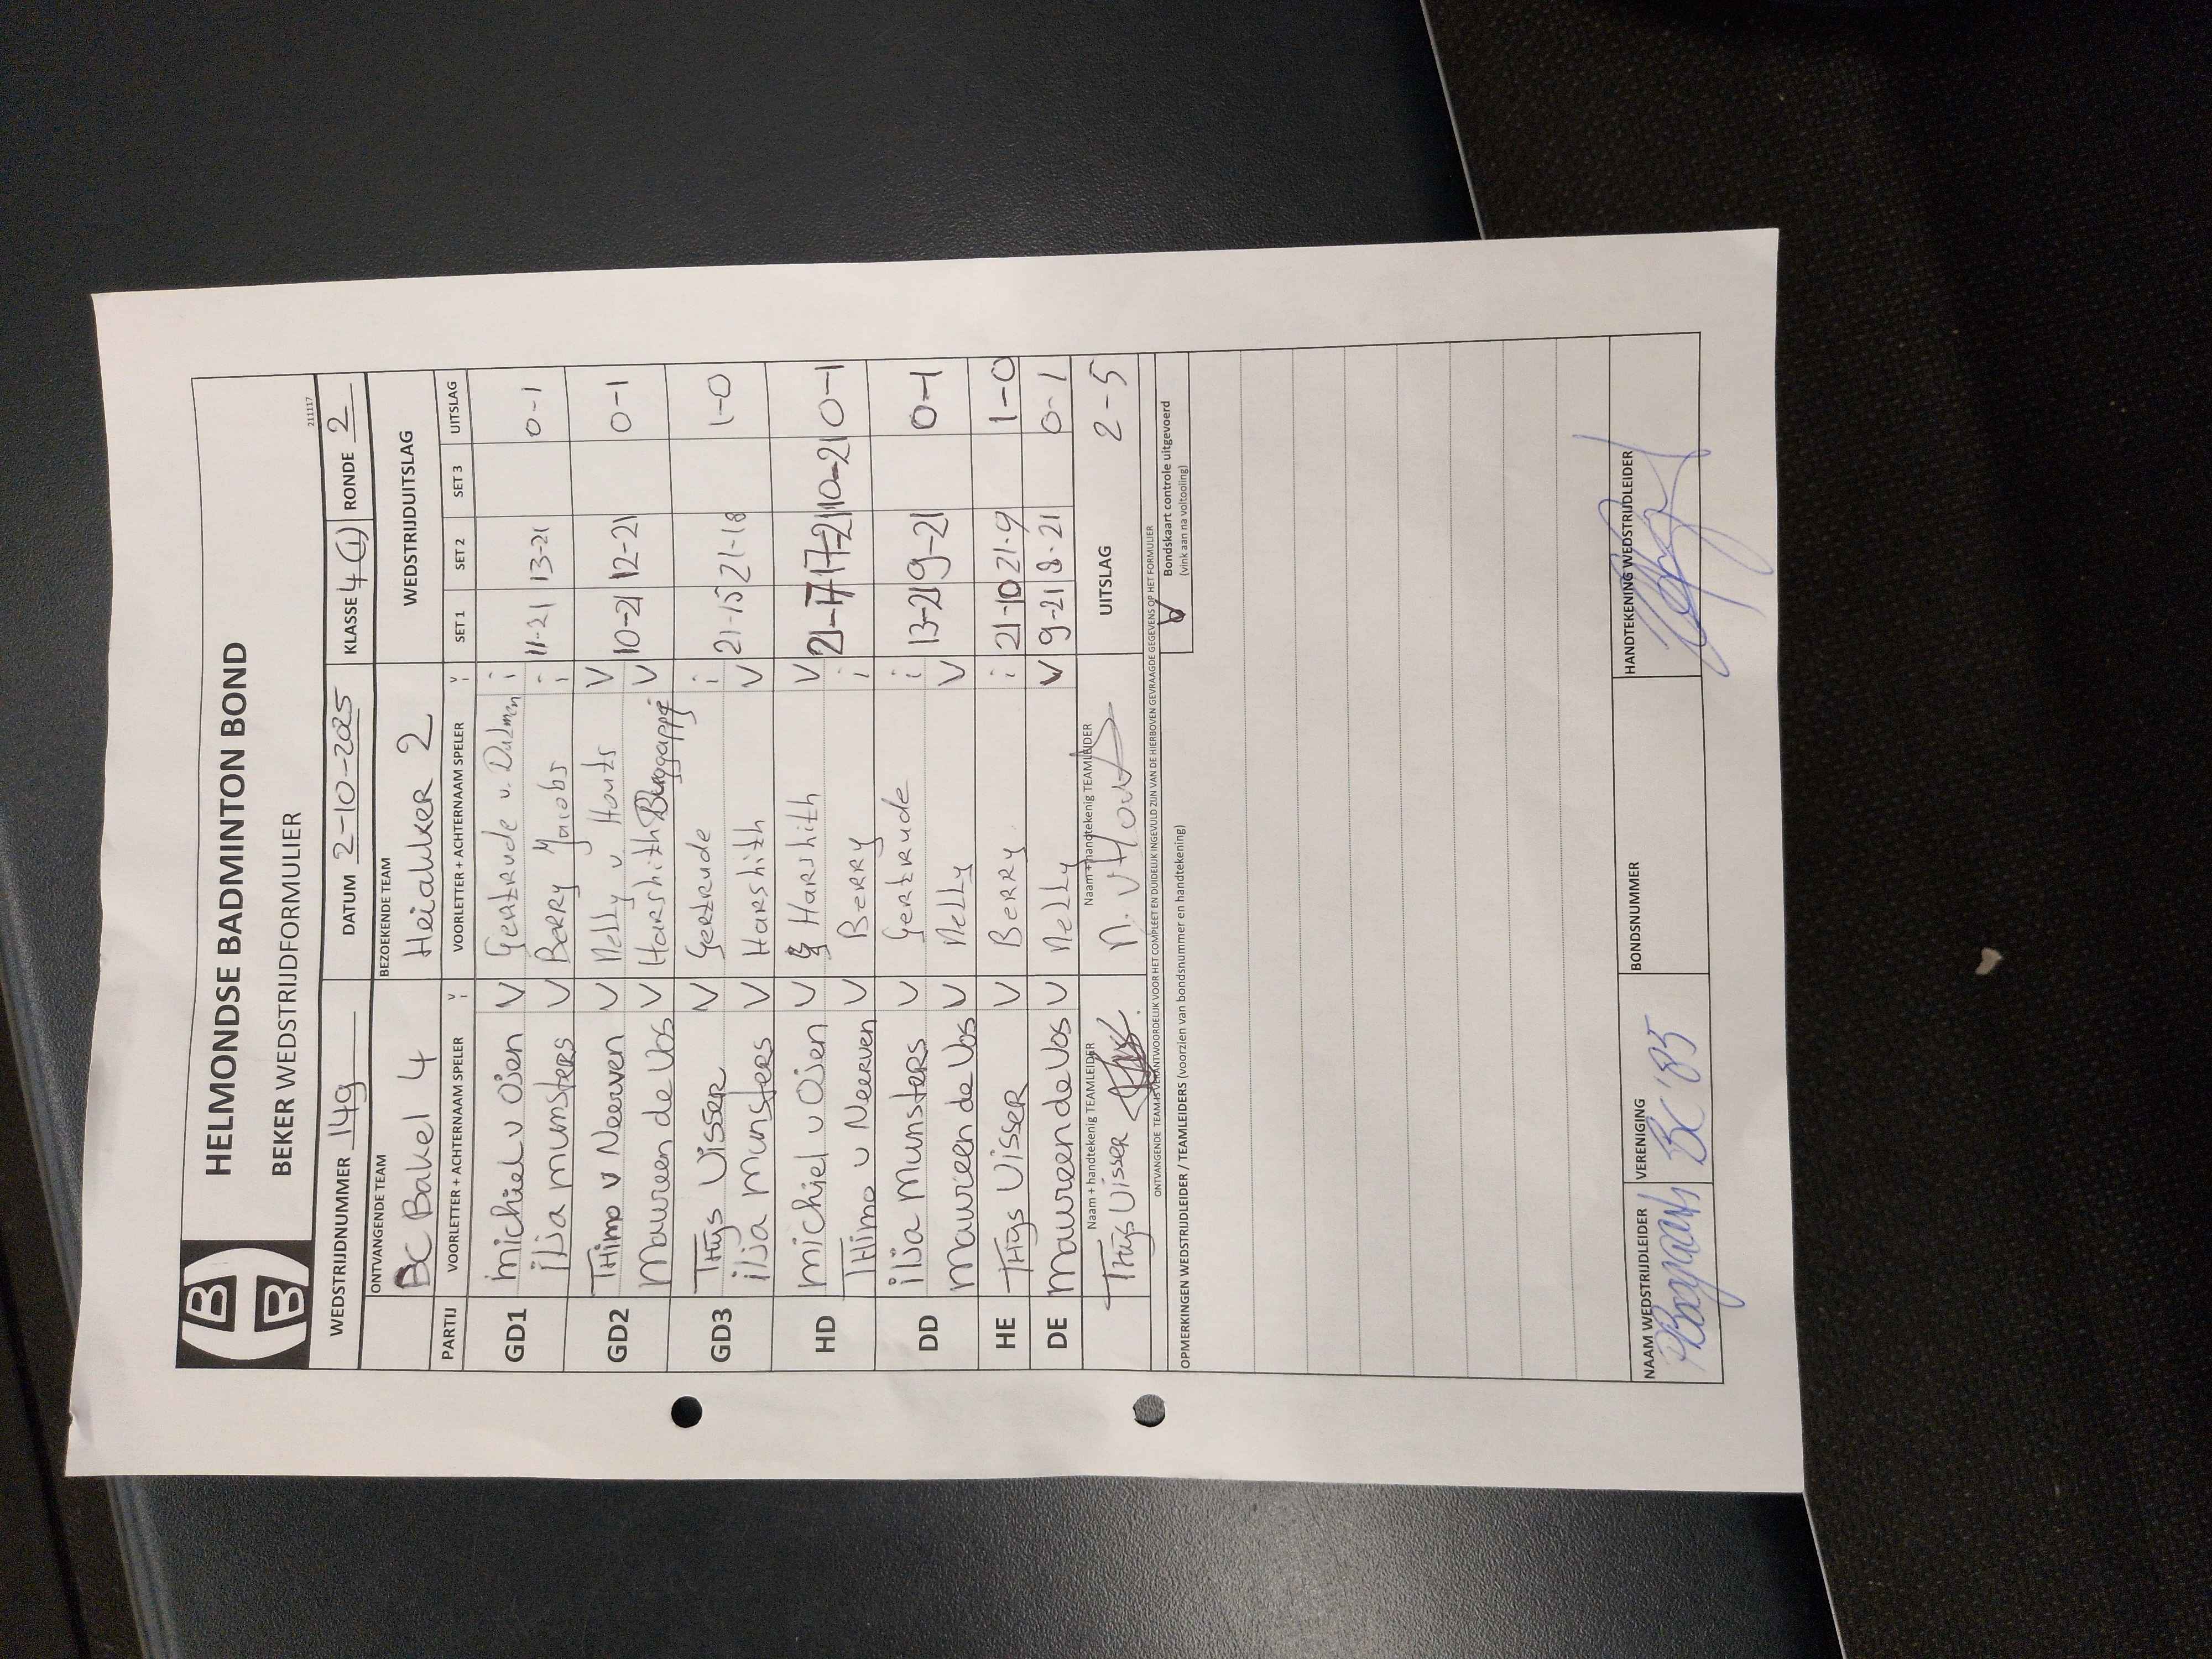 HELMONDSE BADMINTON BOND
BEKER WEDSTRIJDFORMULIER
211117
WEDSTRIJDNUMMER 149 DATUM 2-10-2025 KLASSE 4 (1) RONDE 2
ONTVANGENDE TEAM BEZOEKENDE TEAM WEDSTRIJDUITSLAG
BC Bakel 4 Heiakker 2
PARTIJ VOORLETTER + ACHTERNAAM SPELER V I VOORLETTER + ACHTERNAAM SPELER V I SET 1 SET 2 SET 3 UITSLAG
GD1 michiel v Osen V Gertrude v. i 11-21 13-21 0-1
ilja munsters V Berry Jacobs i
GD2 THimo v Neerven V Nelly v Houts V 10-21 12-21 0-1
Maureen de Vos V Harshith V
GD3 THijs Visser V Gertrude i 21-15 21-18 1-0
ilja munsters V Harshith V
HD michiel v Osen V Harshith V 21-17 17-21 10-21 0-1
THimo v Neerven V Berry i
DD ilja munsters V Gertrude i 13-21 9-21 0-1
Maureen de Vos V Nelly V
HE THijs Visser V Berry i 21-10 21-9 1-0
DE Maureen de Vos V Nelly V 9-21 8-21 0-1
Naam + handtekenig TEAMLEIDER Naam + handtekenig TEAMLEIDER UITSLAG 2-5
THijs Visser N. v Hout
ONTVANGENDE TEAM IS VERANTWOORDELIJK VOOR HET COMPLEET EN DUIDELIJK INGEVULD ZIJN VAN DE HIERBOVEN GEVRAAGDE GEGEVENS OP HET FORMULIER
V Bondskaart controle uitgevoerd
(vink aan na voltooiing)
OPMERKINGEN WEDSTRIJDLEIDER / TEAMLEIDERS (voorzien van bondsnummer en handtekening)
NAAM WEDSTRIJDLEIDER VERENIGING BONDSNUMMER HANDTEKENING WEDSTRIJDLEIDER
BC '85